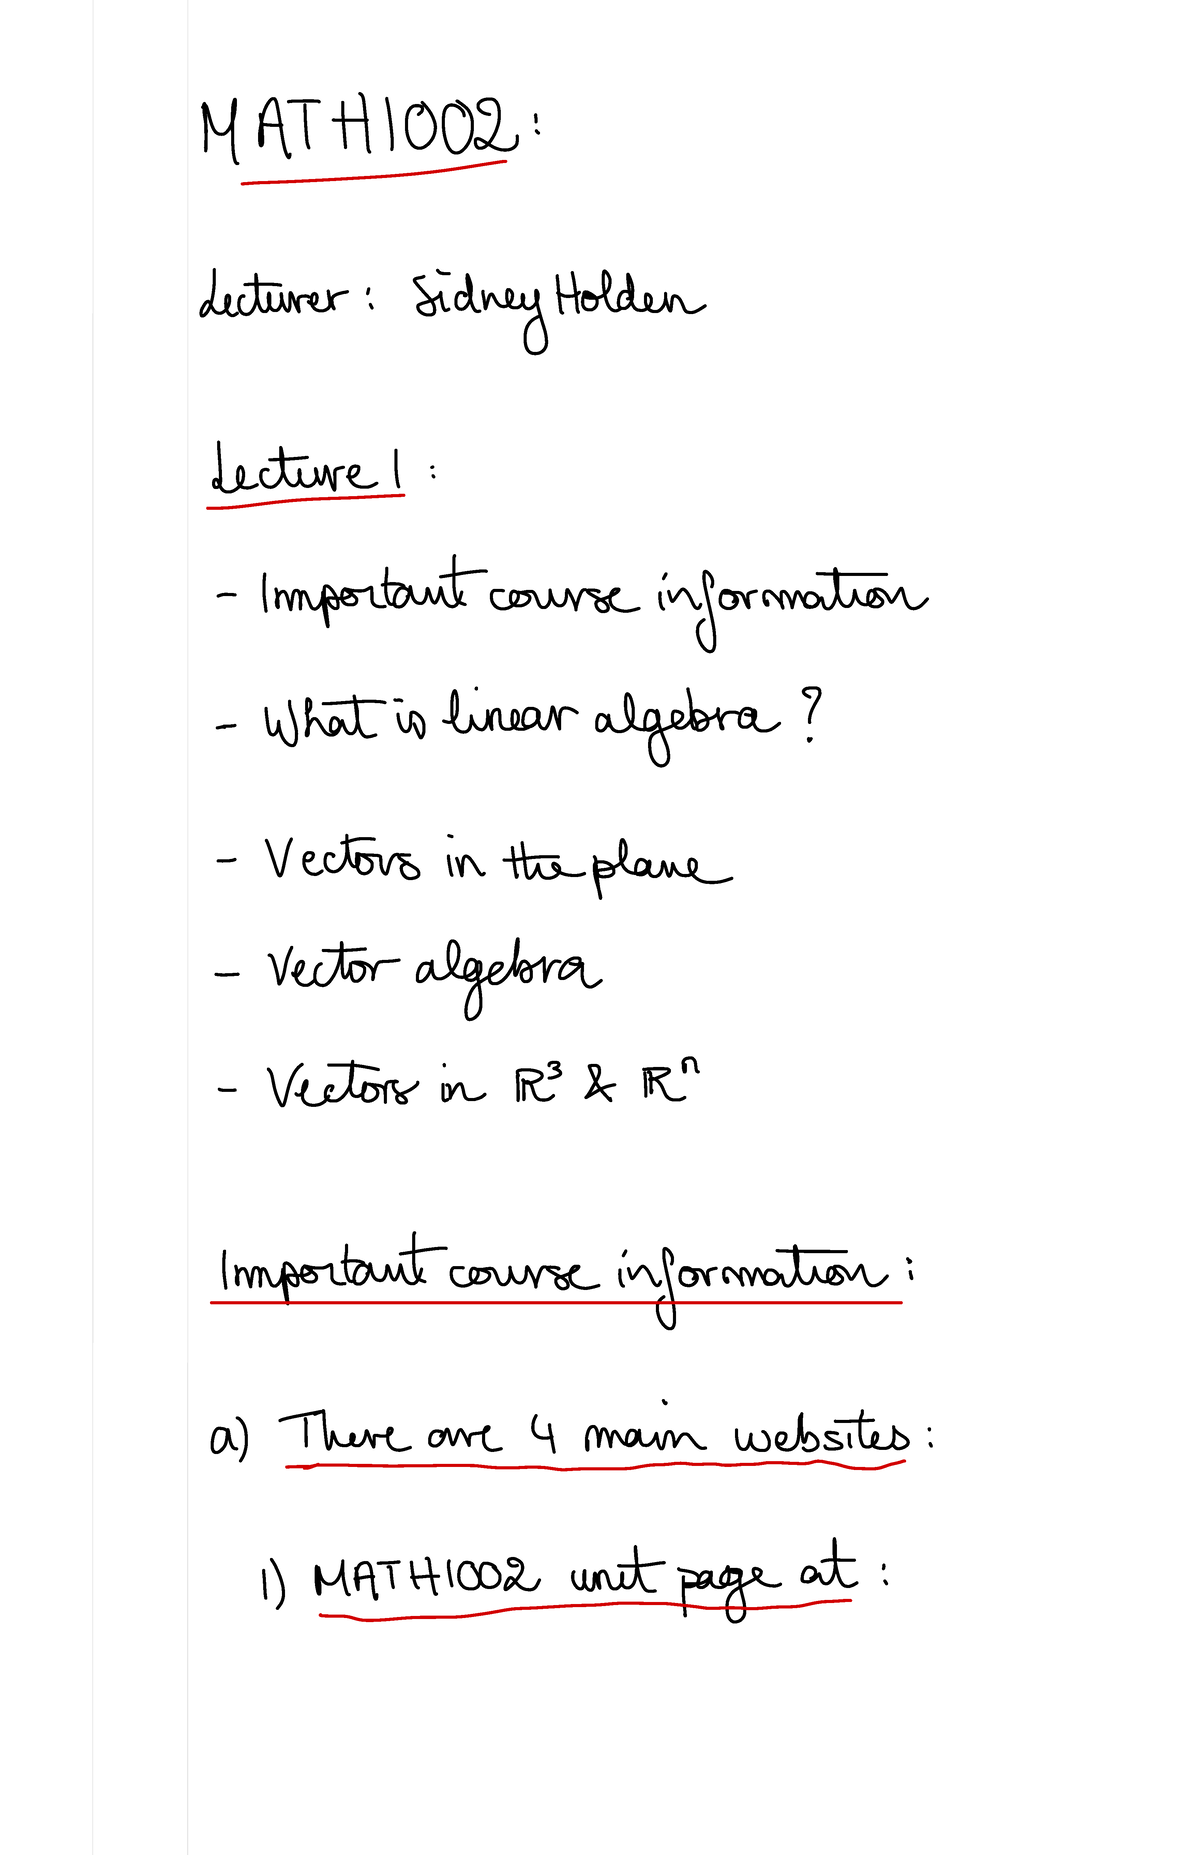 MATH1002:
Lecturer: Sidney Holden
Lecture 1:
- Important course information
- What is linear algebra?
- Vectors in the plane
- Vector algebra
- Vectors in ℝ³ & ℝⁿ
Important course information:
a) There are 4 main websites:
1) MATH1002 unit page at: